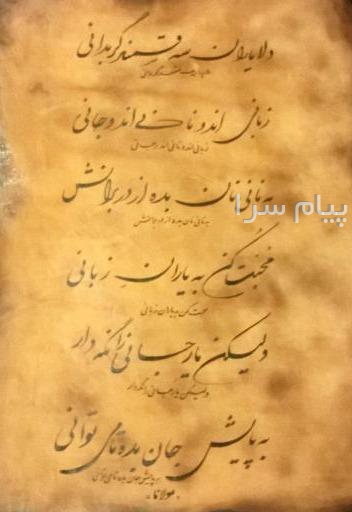 دلا یاران سه قسمند گر بدانی
دلا یاران سه قسمند گر بدانی
زبانی اند و نانی اند و جانی
زبانی اند و نانی اند و جانی
به نانی نان بده از در برانش
پیام سرا
به نانی نان بده از در برانش
محبت کن به یاران زبانی
محبت کن به یاران زبانی
ولیکن یار جانی را نگه دار
ولیکن یار جانی را نگه دار
به پایش جان بده تا می توانی
به پایش جان بده تا می توانی
"مولانا"